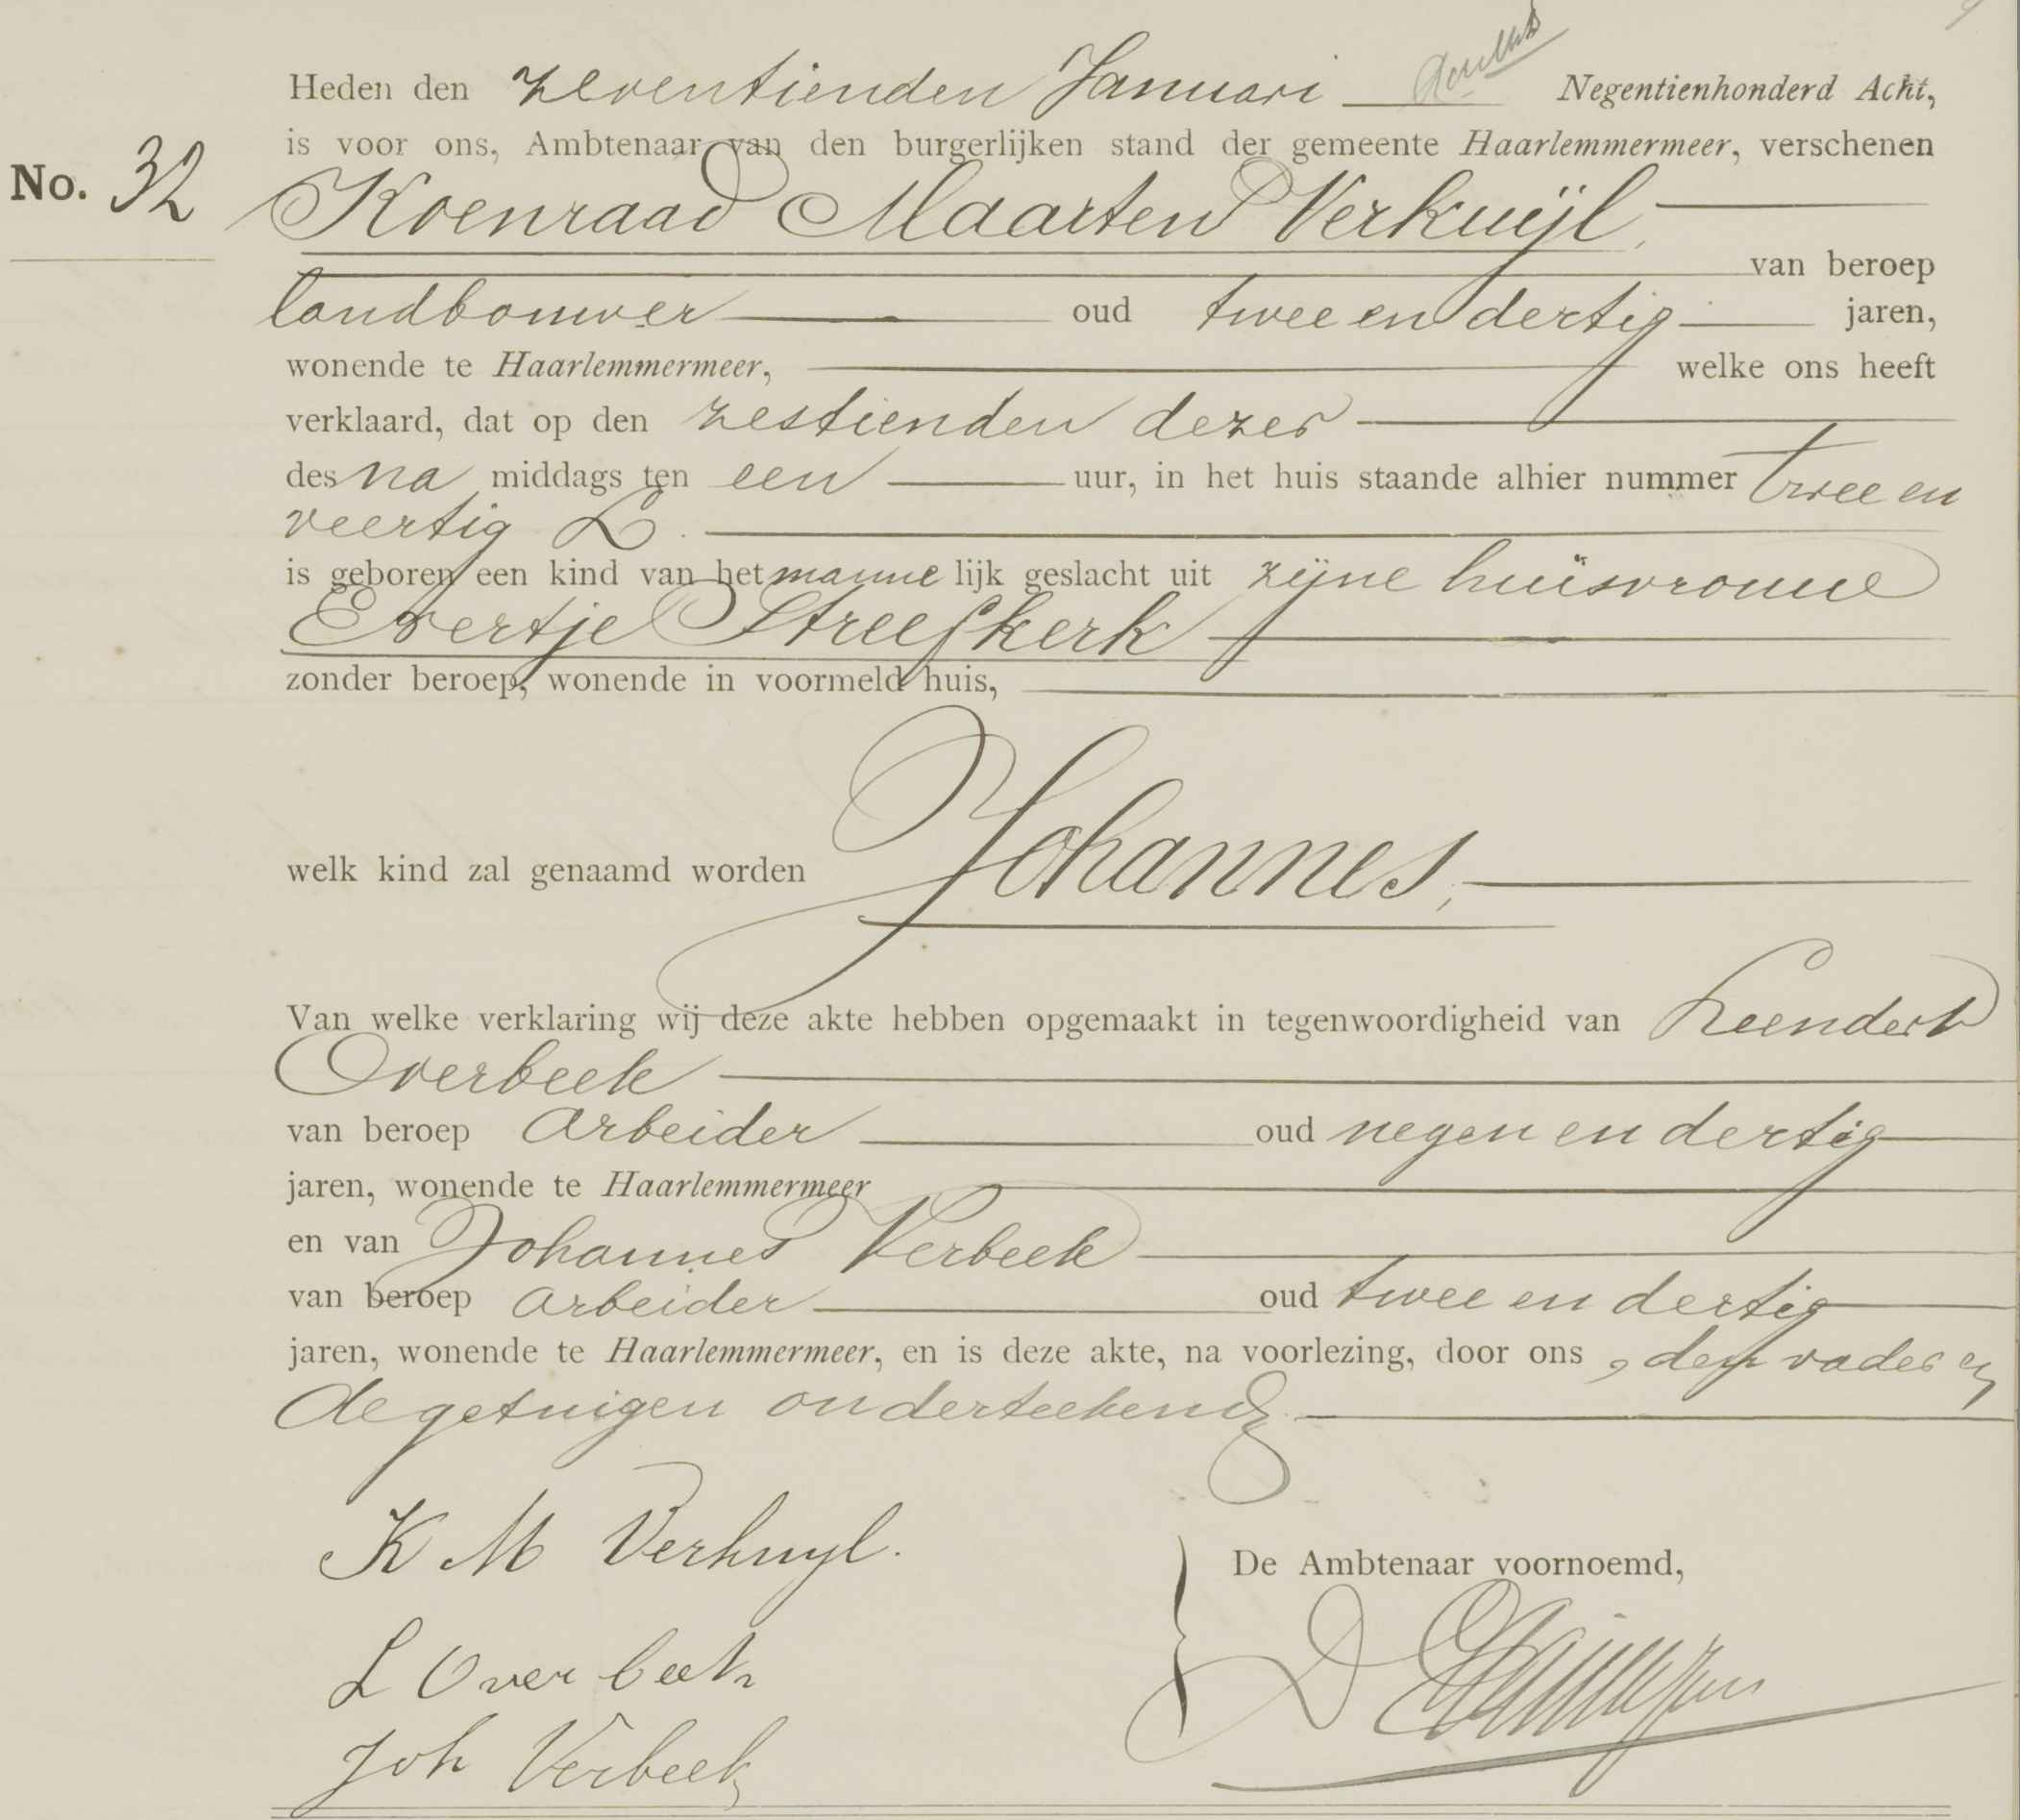 Heden den zeventienden Januari Negentienhonderd Acht,
is voor ons, Ambtenaar van den burgerlijken stand der gemeente Haarlemmermeer, verschenen
No. 32
Koenraad Maarten Verkuijl,
van beroep
landbouwer oud twee en dertig jaren,
wonende te Haarlemmermeer, welke ons heeft
verklaard, dat op den zestienden dezer
des na middags ten een uur, in het huis staande alhier nummer twee en
veertig L.
is geboren een kind van het manne lijk geslacht uit zijne huisvrouw
Evertje Streefkerk
zonder beroep, wonende in voormeld huis,
welk kind zal genaamd worden Johannes,
Van welke verklaring wij deze akte hebben opgemaakt in tegenwoordigheid van Leendert
Overbeek
van beroep Arbeider oud negen en dertig
jaren, wonende te Haarlemmermeer
en van Johannes Verbeek
van beroep arbeider oud twee en dertig
jaren, wonende te Haarlemmermeer, en is deze akte, na voorlezing, door ons, den vader en
de getuigen onderteekend.
K M Verkuyl.
De Ambtenaar voornoemd,
L Overbeek
Joh Verbeek